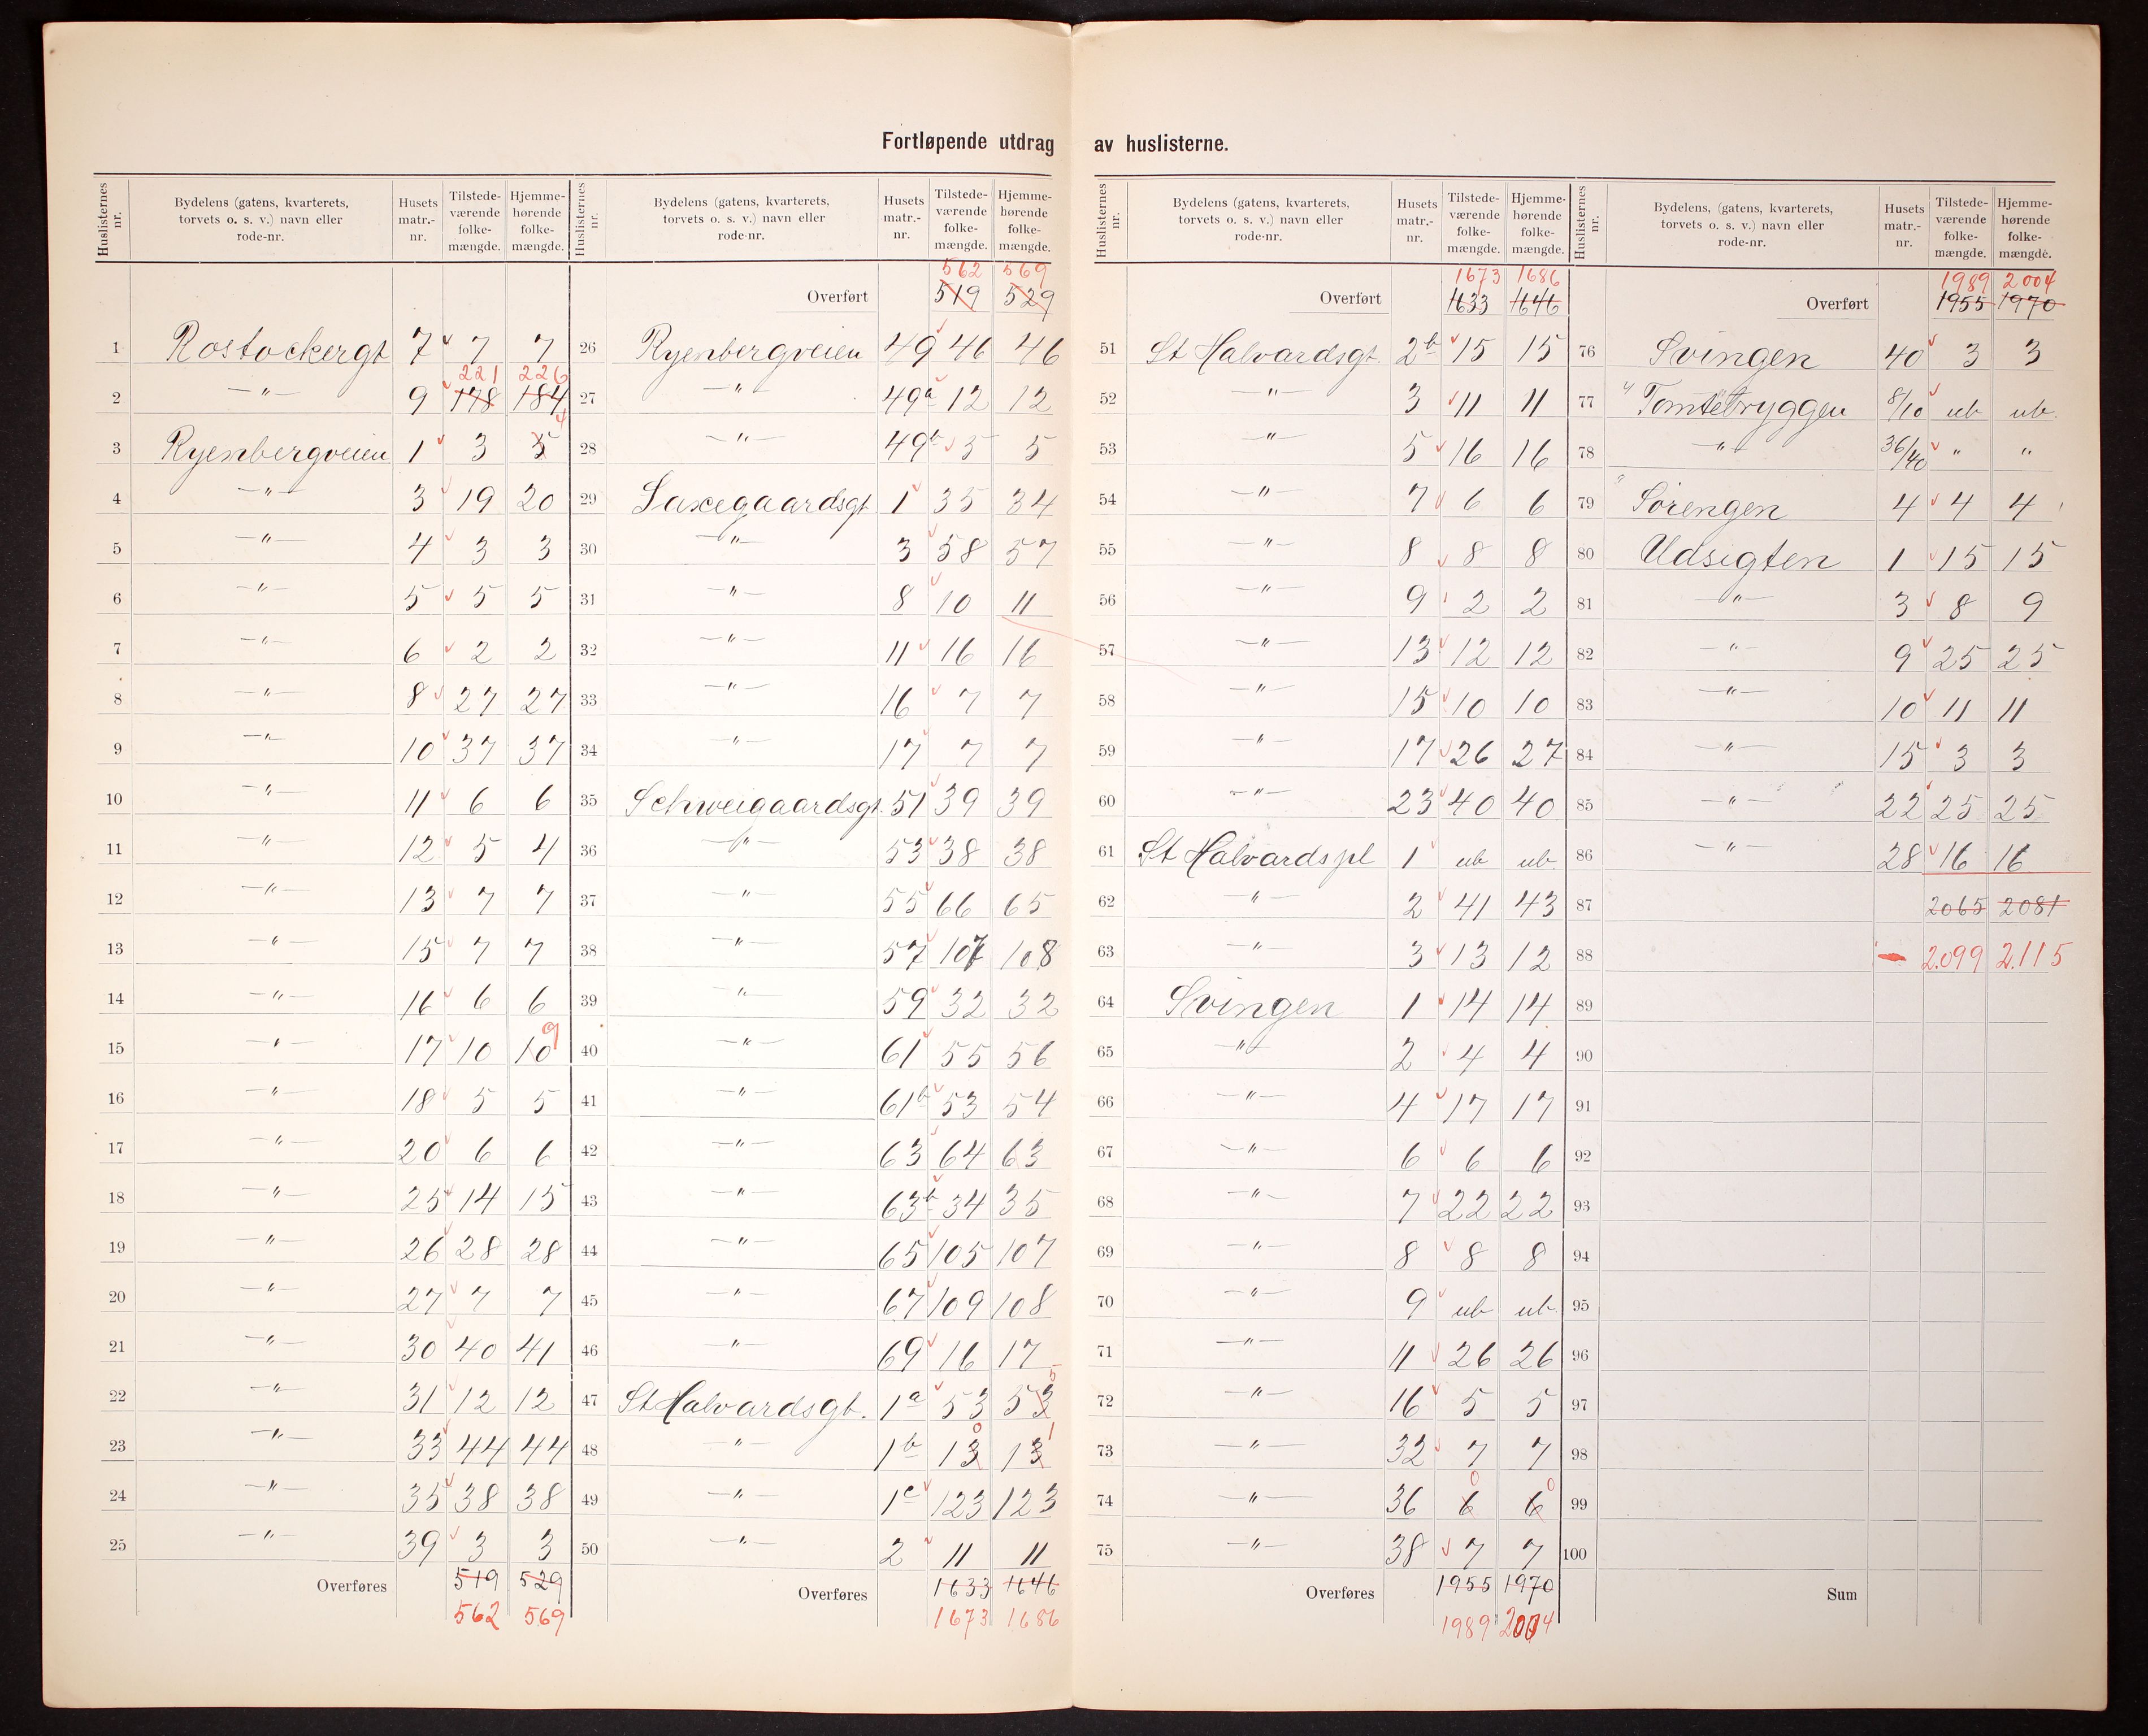 Fortløpende utdrag av huslisterne.
Huslisternes nr. | Bydelens (gatens, kvarterets, torvets o. s. v.) navn eller rode-nr. | Husets matr.-nr. | Tilstede-værende folke-mængde. | Hjemme-hørende folke-mængde.
1 Rostockergt 7 7 7
2 —"— 9 178 221 184 226
3 Ryenbergveien 1 3 5 4
4 —"— 3 19 20
5 —"— 4 3 3
6 —"— 5 5 5
7 —"— 6 2 2
8 —"— 8 27 27
9 —"— 10 37 37
10 —"— 11 6 6
11 —"— 12 5 4
12 —"— 13 7 7
13 —"— 15 7 7
14 —"— 16 6 6
15 —"— 17 10 10 9
16 —"— 18 5 5
17 —"— 20 6 6
18 —"— 25 14 15
19 —"— 26 28 28
20 —"— 27 7 7
21 —"— 30 40 41
22 —"— 31 12 12
23 —"— 33 44 44
24 —"— 35 38 38
25 —"— 39 3 3
Overføres 519 529
562 569
Huslisternes nr. | Bydelens (gatens, kvarterets, torvets o. s. v.) navn eller rode-nr. | Husets matr.-nr. | Tilstede-værende folke-mængde. | Hjemme-hørende folke-mængde.
562 569
Overført 519 529
26 Ryenbergveien 49 46 46
27 —"— 49a 12 12
28 —"— 49b 5 5
29 Saxegaardsgt 1 35 34
30 —"— 3 58 57
31 —"— 8 10 11
32 —"— 11 16 16
33 —"— 16 7 7
34 —"— 17 7 7
35 Schweigaardsgt. 51 39 39
36 —"— 53 38 38
37 —"— 55 66 65
38 —"— 57 107 108
39 —"— 59 32 32
40 —"— 61 55 56
41 —"— 61b 53 54
42 —"— 63 64 63
43 —"— 63b 34 35
44 —"— 65 105 107
45 —"— 67 109 108
46 —"— 69 16 17
47 St Halvardsgt. 1a 53 53 5
48 —"— 1b 13 0 13 1
49 —"— 1c 123 123
50 —"— 2 11 11
Overføres 1633 1646
1673 1686
Huslisternes nr. | Bydelens (gatens, kvarterets, torvets o. s. v.) navn eller rode-nr. | Husets matr.-nr. | Tilstede-værende folke-mængde. | Hjemme-hørende folke-mængde.
1673 1686
Overført 1633 1646
51 St Halvardsgt. 2b 15 15
52 —"— 3 11 11
53 —"— 5 16 16
54 —"— 7 6 6
55 —"— 8 8 8
56 —"— 9 2 2
57 —"— 13 12 12
58 —"— 15 10 10
59 —"— 17 26 27
60 —"— 23 40 40
61 St Halvards pl 1 ub ub.
62 —"— 2 41 43
63 —"— 3 13 12
64 Svingen 1 14 14
65 —"— 2 4 4
66 —"— 4 17 17
67 —"— 6 6 6
68 —"— 7 22 22
69 —"— 8 8 8
70 —"— 9 ub ub.
71 —"— 11 26 26
72 —"— 16 5 5
73 —"— 32 7 7
74 —"— 36 6 0 6 0
75 —"— 38 7 7
Overføres 1955 1970
1989 2004
Huslisternes nr. | Bydelens, (gatens, kvarterets, torvets o. s. v.) navn eller rode-nr. | Husets matr.-nr. | Tilstede-værende folke-mængde. | Hjemme-hørende folke-mængde.
1989 2004
Overført 1955 1970
76 Svingen 40 3 3
77 Tomtebryggen 8/10 ub ub.
78 —"— 36/40 " "
79 Sørengen 4 4 4
80 Udsigten 1 15 15
81 —"— 3 8 9
82 —"— 9 25 25
83 —"— 10 11 11
84 —"— 15 3 3
85 —"— 22 25 25
86 —"— 28 16 16
87 2065 2081
88 2.099 2.115
89
90
91
92
93
94
95
96
97
98
99
100
Sum